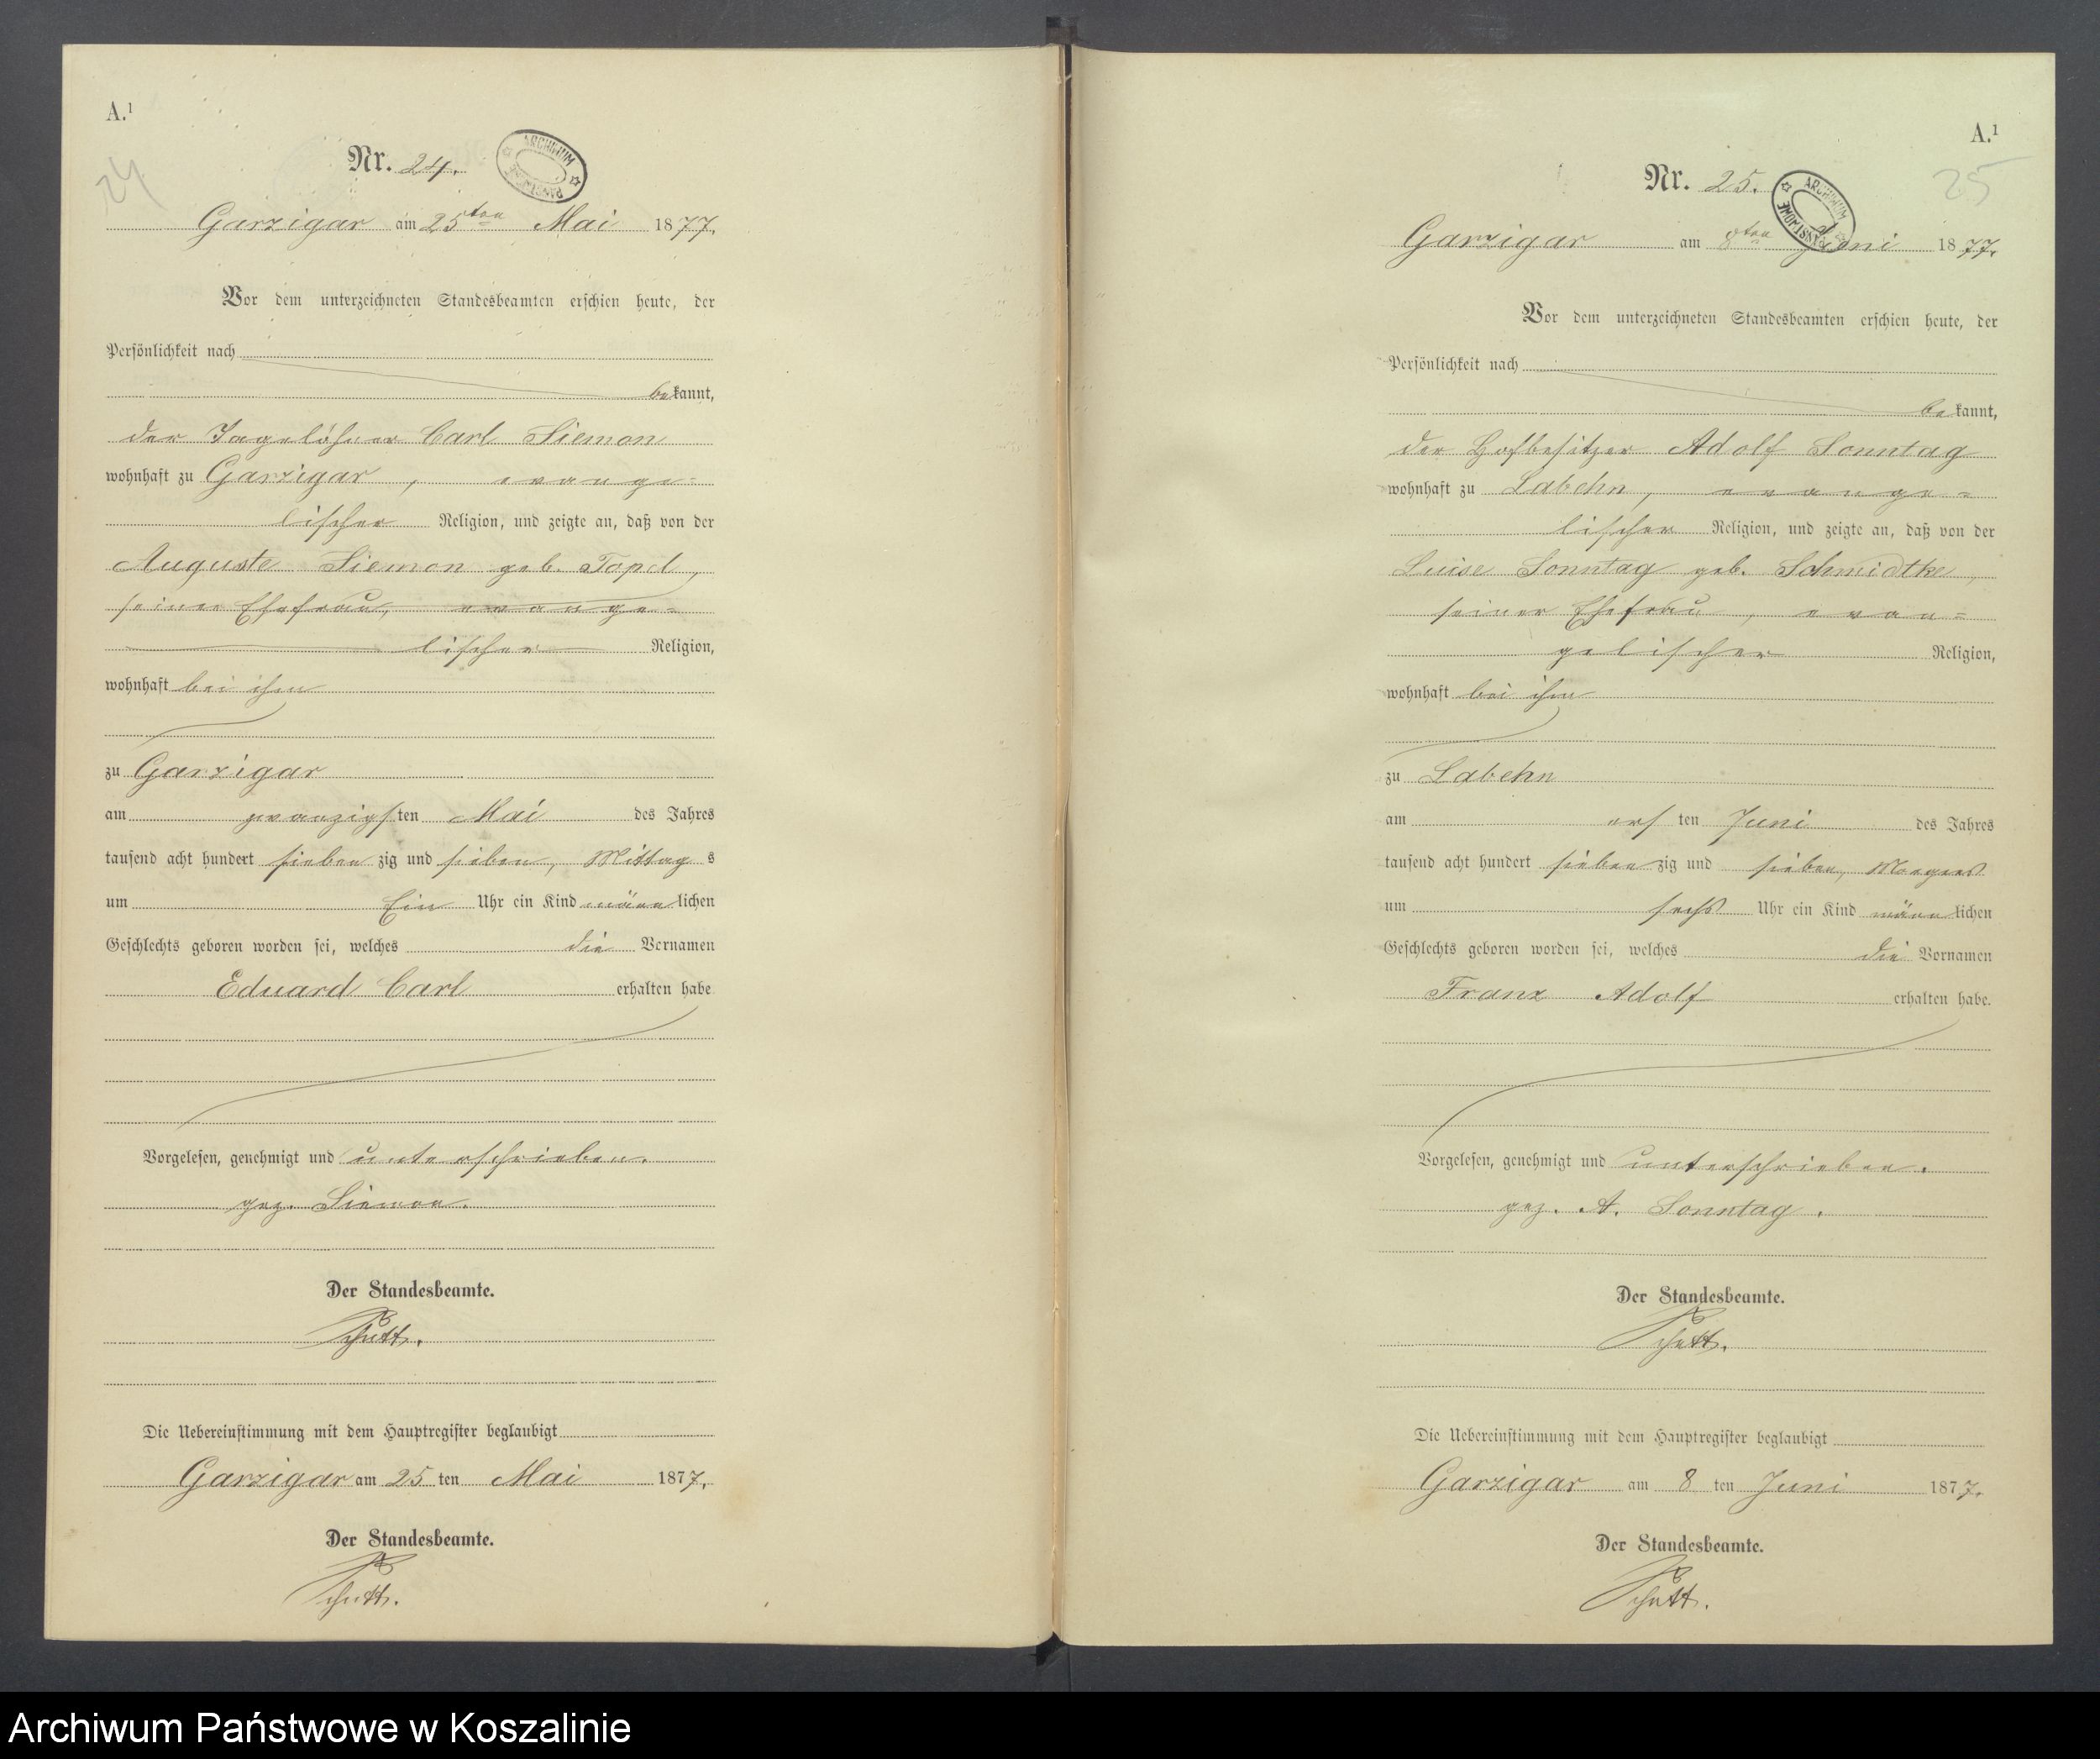 A.¹
24
Nr. 24.
ARCHIWUM PAŃSTWOWE
Garzigar am 25ten Mai 1877.
Vor dem unterzeichneten Standesbeamten erschien heute, der
Persönlichkeit nach
bekannt,
der Tagelöhner Carl Siemon
wohnhaft zu Garzigar, evange-
lischer Religion, und zeigte an, daß von der
Auguste Siemon geb. Topel,
seiner Ehefrau, evange-
lischer Religion,
wohnhaft bei ihm
zu Garzigar
am zwanzigsten Mai des Jahres
tausend acht hundert siebenzig und sieben, Mittags
um Ein Uhr ein Kind männlichen
Geschlechts geboren worden sei, welches die Vornamen
Eduard Carl erhalten habe
Vorgelesen, genehmigt und unterschrieben.
gez. Siemon.
Der Standesbeamte.
Schutt.
Die Uebereinstimmung mit dem Hauptregister beglaubigt
Garzigar am 25ten Mai 1877.
Der Standesbeamte.
Schutt.
A.¹
25
Nr. 25.
ARCHIWUM PAŃSTWOWE
Garzigar am 8ten Juni 1877.
Vor dem unterzeichneten Standesbeamten erschien heute, der
Persönlichkeit nach
bekannt,
der Hofbesitzer Adolf Sonntag
wohnhaft zu Labehn, evange-
lischer Religion, und zeigte an, daß von der
Luise Sonntag geb. Schmidtke,
seiner Ehefrau, evan-
gelischer Religion,
wohnhaft bei ihm
zu Labehn
am ersten Juni des Jahres
tausend acht hundert siebenzig und sieben, Morgens
um sechs Uhr ein Kind männlichen
Geschlechts geboren worden sei, welches die Vornamen
Franz Adolf erhalten habe.
Vorgelesen, genehmigt und unterschrieben.
gez. A. Sonntag.
Der Standesbeamte.
Schutt.
Die Uebereinstimmung mit dem Hauptregister beglaubigt
Garzigar am 8ten Juni 1877.
Der Standesbeamte.
Schutt.
Archiwum Państwowe w Koszalinie